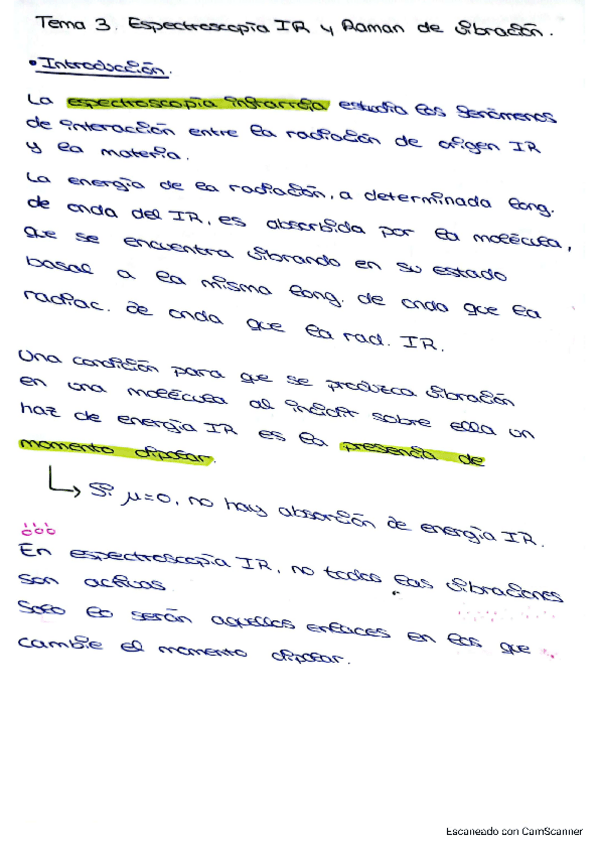 Tema 3. Espectroscopía IR y Raman de vibración.
• Introducción.
La espectroscopía infrarroja estudia los fenómenos
de interacción entre la radiación de origen IR
y la materia.
La energía de la radiación, a determinada long.
de onda del IR, es absorbida por la molécula,
que se encuentra vibrando en su estado
basal a la misma long. de onda que la
radiac. de onda que la rad. IR.
Una condición para que se produzca vibración
en una molécula al incidir sobre ella un
haz de energía IR es la presencia de
momento dipolar.
↳ Si μ=0, no hay absorción de energía IR.
¡¡¡
En espectroscopía IR, no todas las vibraciones
son activas.
Solo lo serán aquellos enlaces en los que
cambie el momento dipolar.
Escaneado con CamScanner